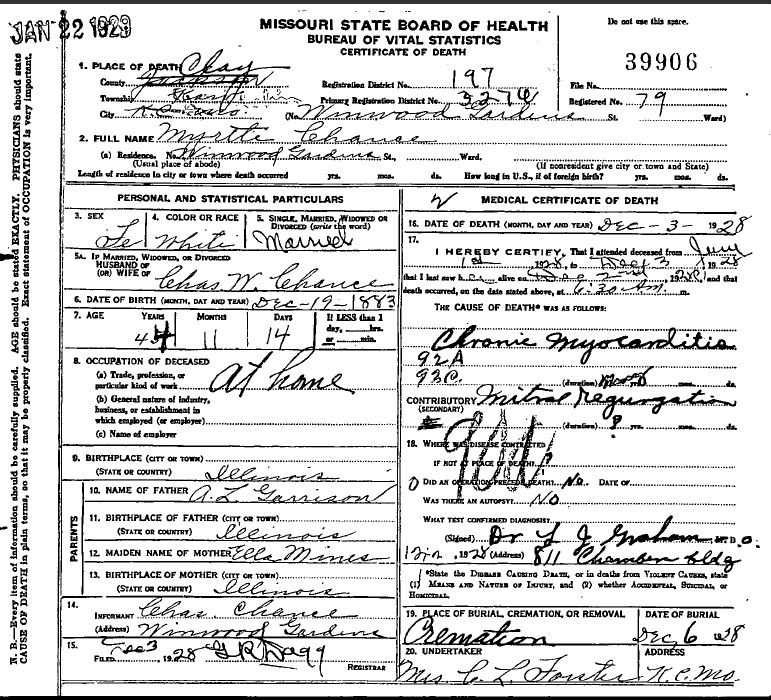 JAN 22 1929
MISSOURI STATE BOARD OF HEALTH
BUREAU OF VITAL STATISTICS
CERTIFICATE OF DEATH
Do not use this space.
39906
1. PLACE OF DEATH Clay
County
Township
City
Registration District No. 197
Primary Registration District No.
File No.
Registered No. 79
(No. Winwood Gardens St. Ward)
2. FULL NAME Myrtle Chance
(a) Residence. No. Winwood Gardens St., Ward.
(Usual place of abode) (If nonresident give city or town and State)
Length of residence in city or town where death occurred yrs. mos. ds. How long in U.S., if of foreign birth? yrs. mos. ds.
PERSONAL AND STATISTICAL PARTICULARS
3. SEX Fe
4. COLOR OR RACE White
5. SINGLE, MARRIED, WIDOWED OR DIVORCED (write the word) Married
5A. IF MARRIED, WIDOWED, OR DIVORCED
HUSBAND OF
(OR) WIFE OF Chas W. Chance
6. DATE OF BIRTH (MONTH, DAY AND YEAR) Dec-19-1883
7. AGE YEARS MONTHS DAYS If LESS than 1
day, ......hrs.
or ......min.
44 11 14
8. OCCUPATION OF DECEASED
(a) Trade, profession, or
particular kind of work At home
(b) General nature of industry,
business, or establishment in
which employed (or employer)
(c) Name of employer
9. BIRTHPLACE (CITY OR TOWN)
(STATE OR COUNTRY) Illinois
PARENTS
10. NAME OF FATHER A. L. Garrison
11. BIRTHPLACE OF FATHER (CITY OR TOWN)
(STATE OR COUNTRY) Illinois
12. MAIDEN NAME OF MOTHER Ella Mines
13. BIRTHPLACE OF MOTHER (CITY OR TOWN)
(STATE OR COUNTRY) Illinois
14.
INFORMANT Chas. Chance
(Address) Winwood Gardens
15.
FILED 1928
REGISTRAR
MEDICAL CERTIFICATE OF DEATH
16. DATE OF DEATH (MONTH, DAY AND YEAR) Dec-3-1928
17.
I HEREBY CERTIFY, That I attended deceased from
1928, to Dec 3, 1928
that I last saw h alive on , 1928, and that
death occurred, on the date stated above, at 6:30 A.M. m.
THE CAUSE OF DEATH* WAS AS FOLLOWS:
Chronic Myocarditis
92A
93C.
(duration) yrs. mos. ds.
CONTRIBUTORY Mitral Regurgation
(SECONDARY)
(duration) ? yrs. mos. ds.
18. WHERE WAS DISEASE CONTRACTED
IF NOT AT PLACE OF DEATH? ?
DID AN OPERATION PRECEDE DEATH? No. DATE OF
WAS THERE AN AUTOPSY? No
WHAT TEST CONFIRMED DIAGNOSIS?
(Signed) Dr L J Graham, M. D. O.
, 1928 (Address) 811 Chamber bldg
*State the DISEASE CAUSING DEATH, or in deaths from VIOLENT CAUSES, state
(1) MEANS AND NATURE OF INJURY, and (2) whether ACCIDENTAL, SUICIDAL, or
HOMICIDAL.
19. PLACE OF BURIAL, CREMATION, OR REMOVAL DATE OF BURIAL
Cremation Dec 6 1928
20. UNDERTAKER ADDRESS
Mrs. C. L. Forster K.C. Mo.
N. B.—Every item of information should be carefully supplied. AGE should be stated EXACTLY. PHYSICIANS should state
CAUSE OF DEATH in plain terms, so that it may be properly classified. Exact statement of OCCUPATION is very important.